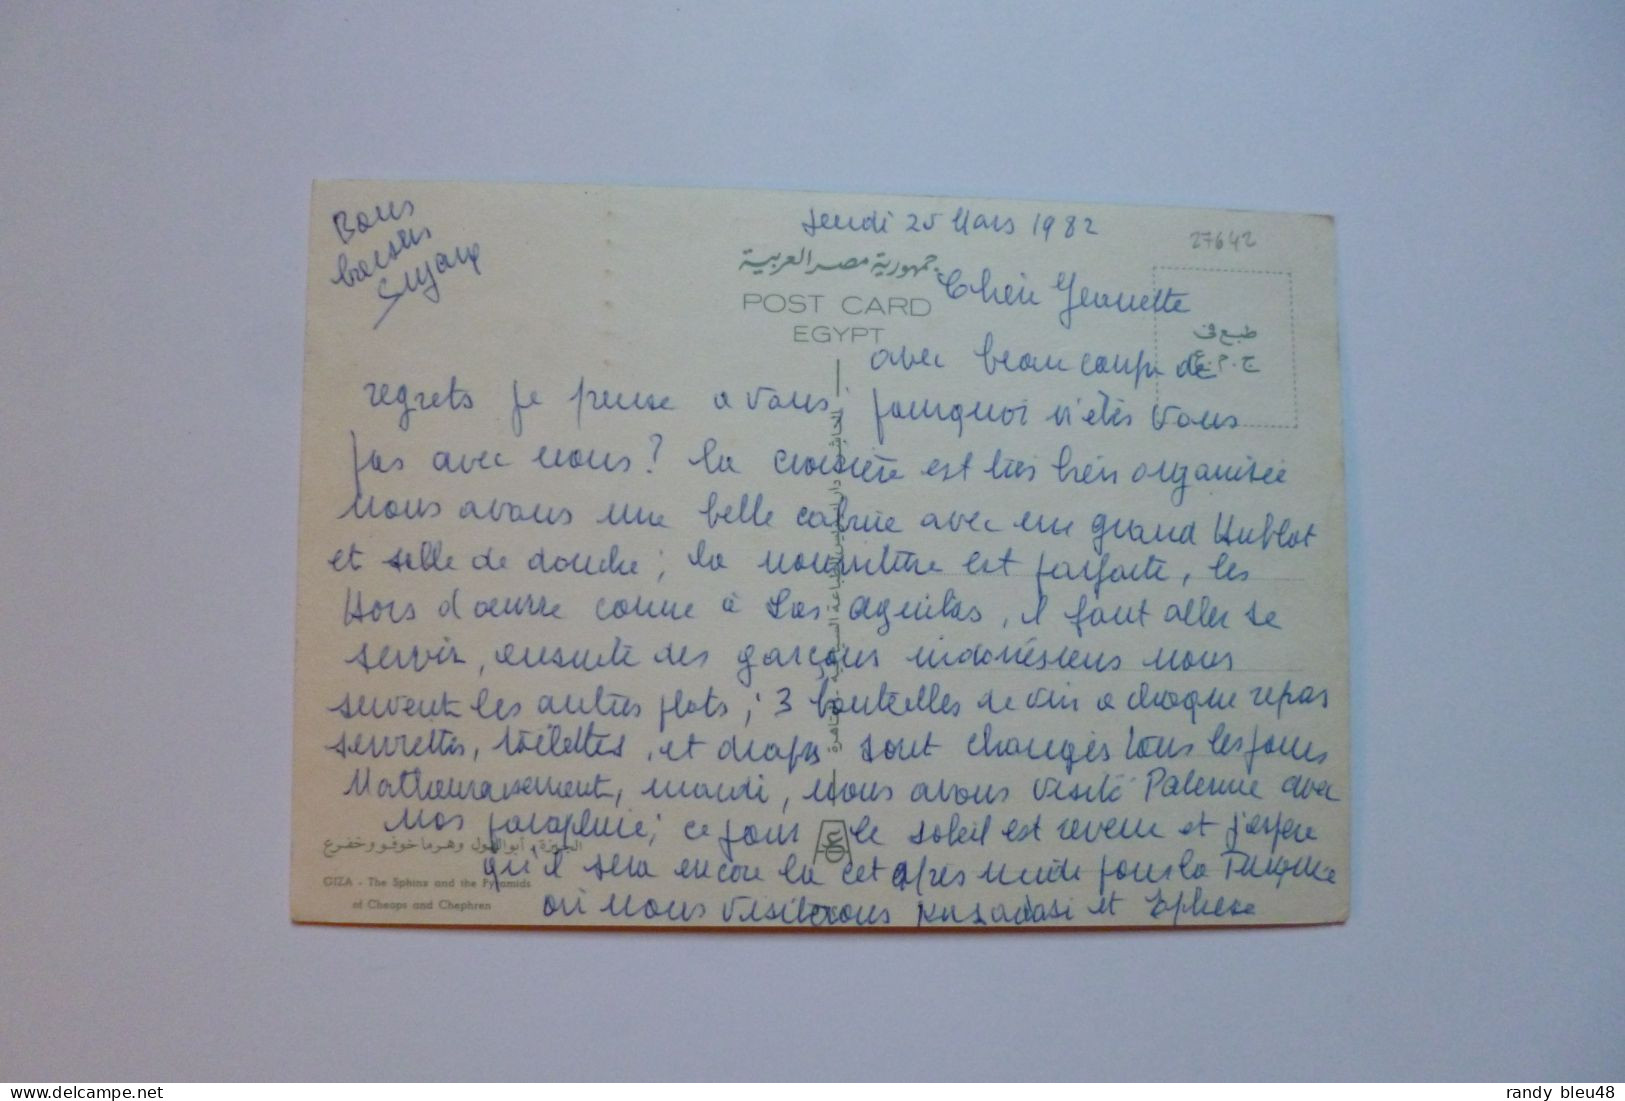 Jeudi 25 Mars 1982
27642
Bons
baisers
Suzanne
جمهورية مصر العربية
POST CARD
EGYPT
طبع فى
ج.م.ع
Chère Jeannette
avec beaucoup de
regrets je pense a vous, pourquoi n'etès vous
pas avec nous? la croisière est très bien organisée
Nous avons une belle cabine avec un grand Hublot
et salle de douche; la nourriture est parfaite, les
Hors d'œuvre comme à Las Aguilas, il faut aller se
servir, ensuite des garçons indonésiens nous
servent les autres plats; 3 bouteilles de vin a chaque repas
serviettes, toilettes, et draps sont changés tous les jours
Malheureusement, mardi, nous avons visité Palerme avec
Nos parapluie; ce jour le soleil est revenu et j'espère
qu'il sera encore la cet après midi pour la Turquie
où nous visiterons Kusadasi et Ephese
الجيزة، أبو الهول وهرما خوفو وخفرع
GIZA - The Sphinx and the Pyramids
of Cheops and Chephren